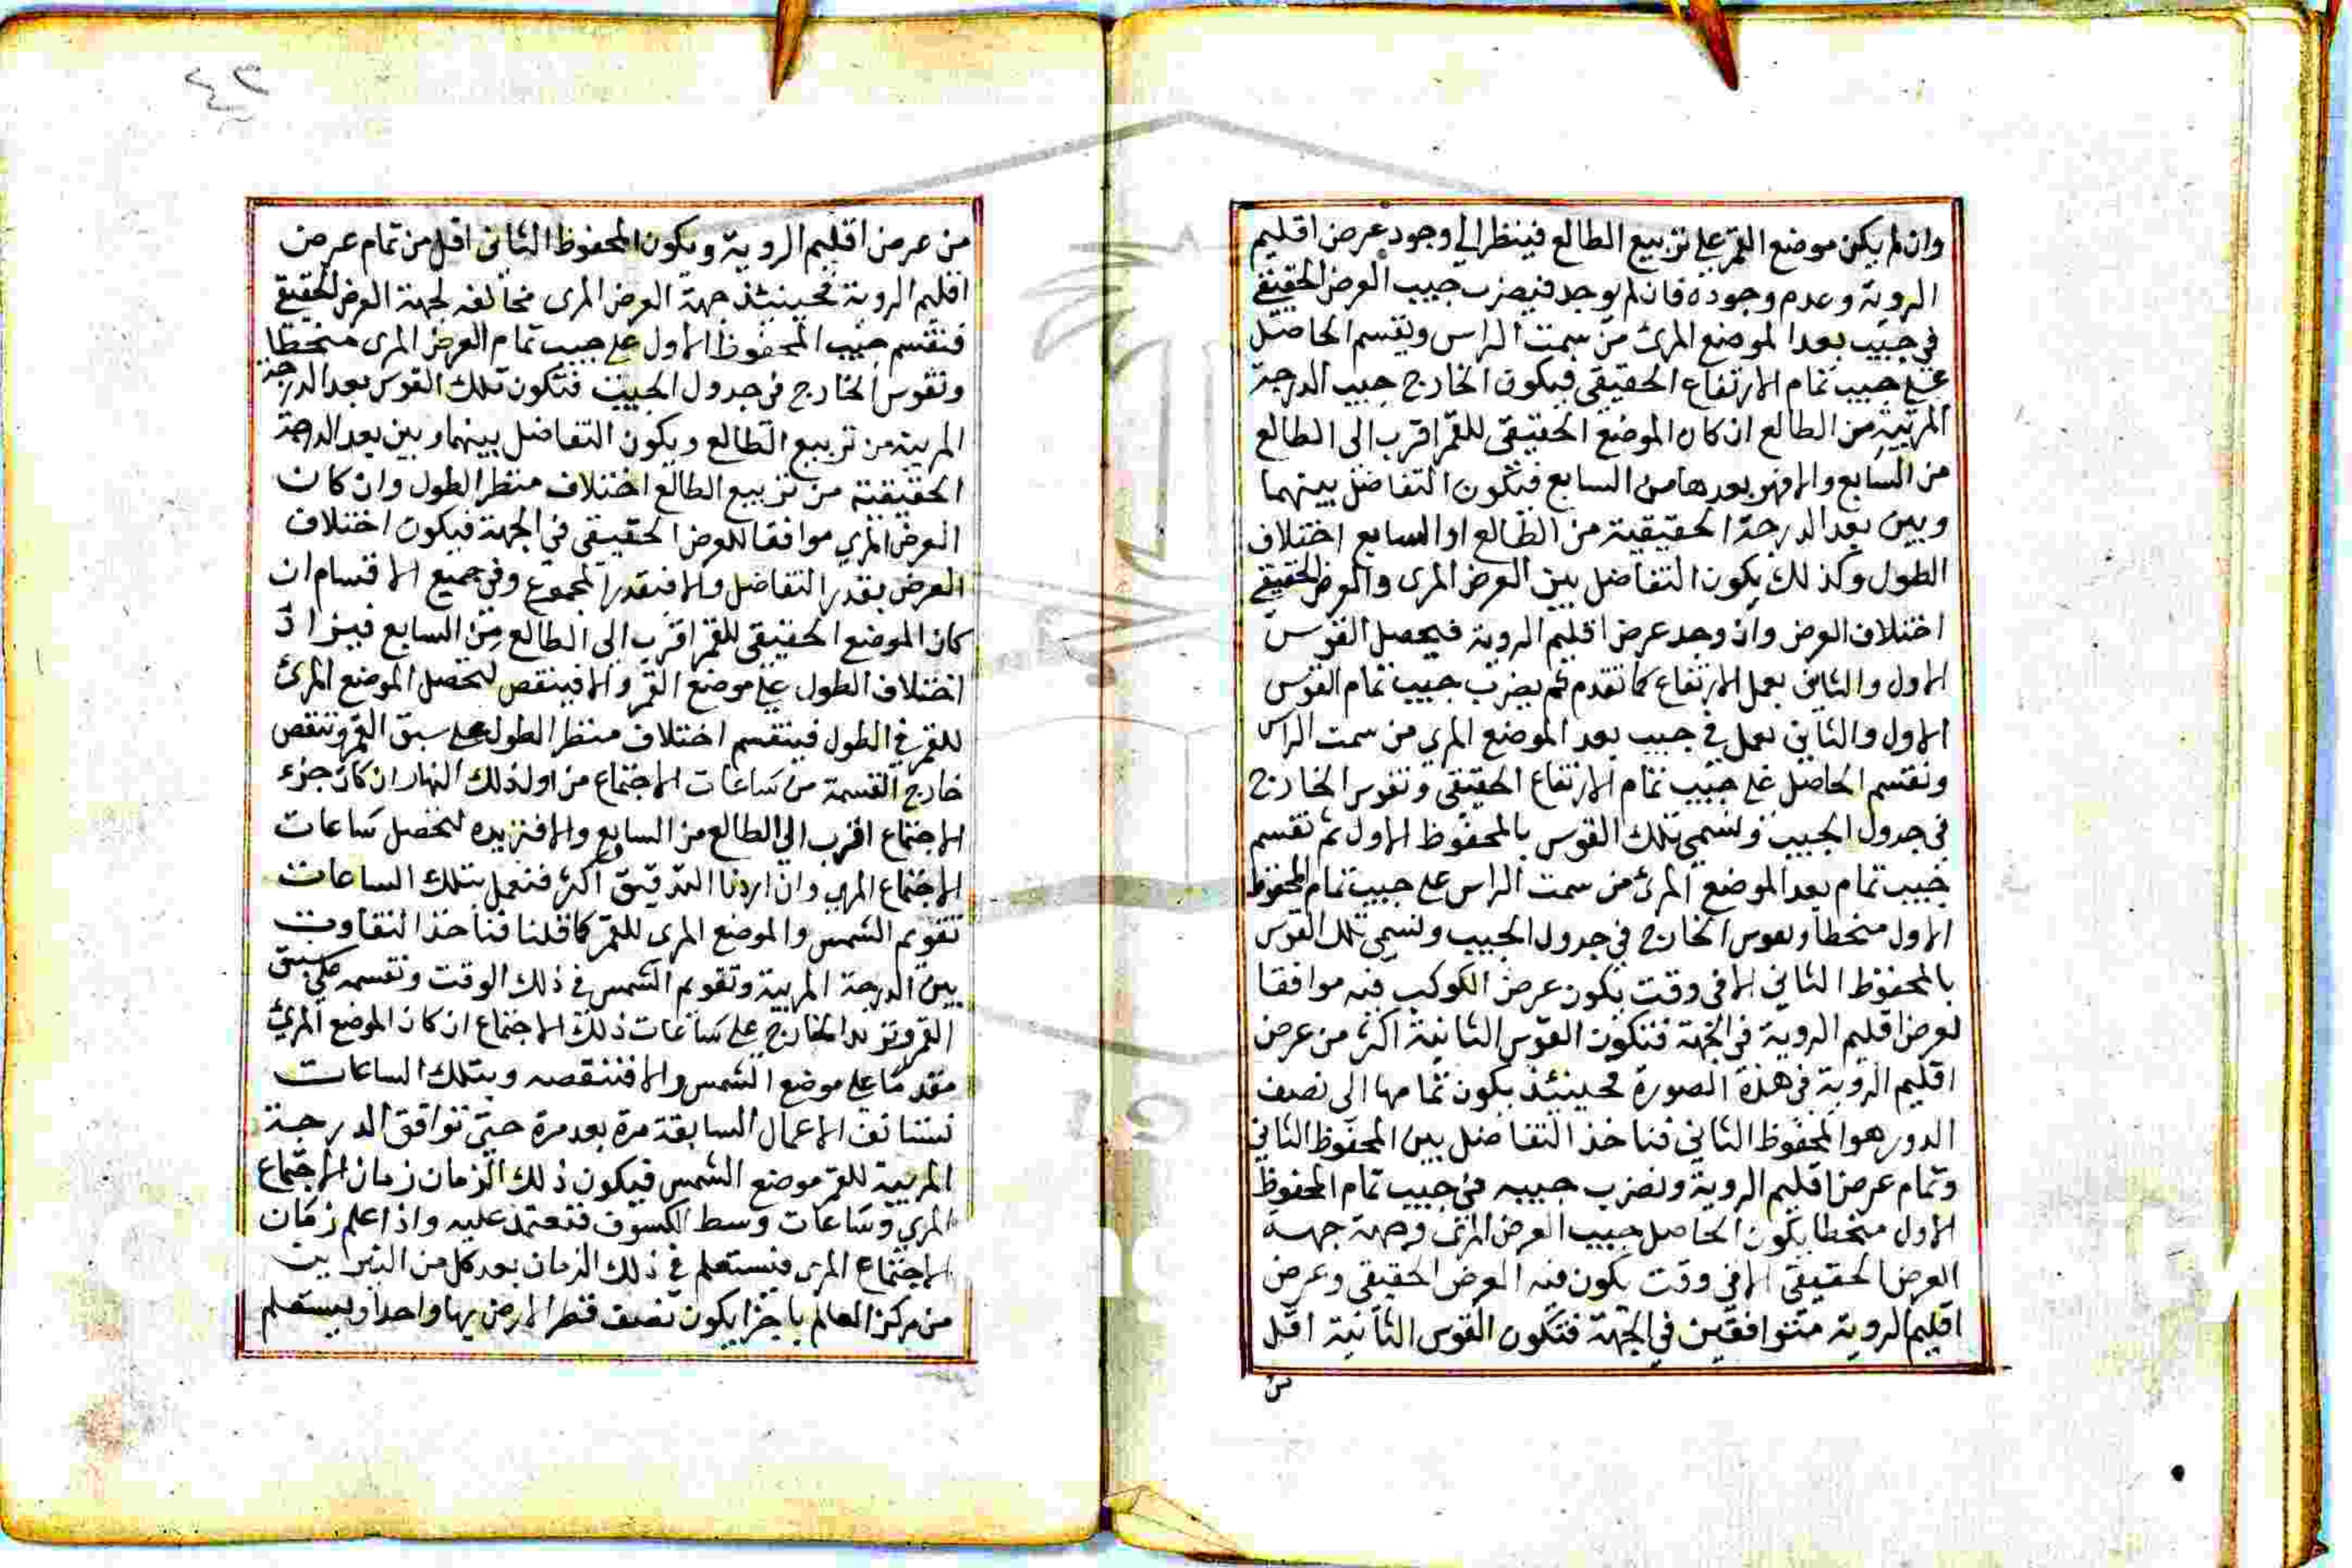 وان لم يكن موضع القمر على تربيع الطالع فينظر الى وجود عرض اقليم
الروية وعدم وجوده فان لم يوجد فيضرب جيب العرض الحقيقي
في جيب بعد الموضع المرئ من سمت الراس ويقسم الحاصل
على جيب تمام الارتفاع الحقيقي فيكون الخارج جيب الدرجة
المرئية من الطالع ان كان الموضع الحقيقي للقمر اقرب الى الطالع
من السابع والا فهو بعدها من السابع فيكون التفاضل بينهما
وبين بعد الدرجة الحقيقية من الطالع او السابع اختلاف
الطول وكذلك يكون التفاضل بين العرض المرى والعرض الحقيقي
اختلاف العرض وان وجد عرض اقليم الروية فيحصل القوس
الاول والثاني بعمل الارتفاع كما تقدم ثم يضرب جيب تمام القوس
الاول والثاني بعمل في جيب بعد الموضع المري من سمت الراس
ونقسم الحاصل على جيب تمام الارتفاع الحقيقي ونقوس الخارج
في جدول الجيب ونسمي تلك القوس بالمحفوظ الاول ثم نقسم
جيب تمام بعد الموضع المرئ من سمت الراس على جيب تمام المحفوظ
الاول منحطا ونقوس الخارج في جدول الجيب ونسمي تلك القوس
بالمحفوظ الثاني الا في وقت يكون عرض الكوكب فيه موافقا
لعرض اقليم الروية في الجهة فتكون القوس الثانية اكثر من عرض
اقليم الروية في هذة الصورة فحينئذ يكون تمامها الى نصف
الدور هو المحفوظ الثاني فناخذ التفاضل بين المحفوظ الثاني
وتمام عرض اقليم الروية ونضرب جيبه في جيب تمام المحفوظ
الاول منحطا يكون الحاصل جيب العرض المرئى وجهة جهة
العرض الحقيقي الا في وقت يكون فيه العرض الحقيقي وعرض
اقليم الروية متوافقين في الجهة فتكون القوس الثانية اقل
من
من عرض اقليم الروية ويكون المحفوظ الثاني اقل من تمام عرض
اقليم الروية فحينئذ جهة العرض المرى مخالفه لجهة العرض الحقيقي
فنقسم جيب المحفوظ الاول على جيب تمام العرض المرى منحطا
ونقوس الخارج في جدول الجيب فتكون تلك القوس بعد الدرجة
المرية من تربيع الطالع ويكون التفاضل بينها وبين بعد الدرجة
الحقيقية من تربيع الطالع اختلاف منظر الطول وان كان
العرض المري موافقا للعرض الحقيقي في الجهة فيكون اختلاف
العرض بقدر التفاضل والا فبقدر المجموع وفي جميع الاقسام ان
كان الموضع الحقيقي للقمر اقرب الى الطالع من السابع فيزاد
اختلاف الطول على موضع القمر والا فينقص ليحصل الموضع المرئ
للقمر في الطول فينقسم اختلاف منظر الطول على سبق القمر وننقص
خارج القسمة من ساعات الاجتماع من اول ذلك النهار ان كان جزء
الاجتماع اقرب الى الطالع من السابع والا فنزيده ليحصل ساعات
الاجتماع المرى وان اردنا التدقيق اكثر فنعمل بتلك الساعات
تقويم الشمس والموضع المرى للقمر كما قلنا فناخذ التفاوت
بين الدرجة المرئية وتقويم الشمس في ذلك الوقت ونقسمه على سبق
القمر ونزيد الخارج على ساعات ذلك الاجتماع ان كان الموضع المرئ
مقدما على موضع الشمس والا فننقصه وبتلك الساعات
نستانف الاعمال السابقة مرة بعد مرة حتى توافق الدرجة
المرئية للقمر موضع الشمس فيكون ذلك الزمان زمان الاجتماع
المري وساعات وسط الكسوف فنعتمد عليه واذا علم زمان
الاجتماع المرى فنستعلم في ذلك الزمان بعد كل من النيرين
من مركز العالم باجزا يكون نصف قطر الارض بها واحدا ويستعلم